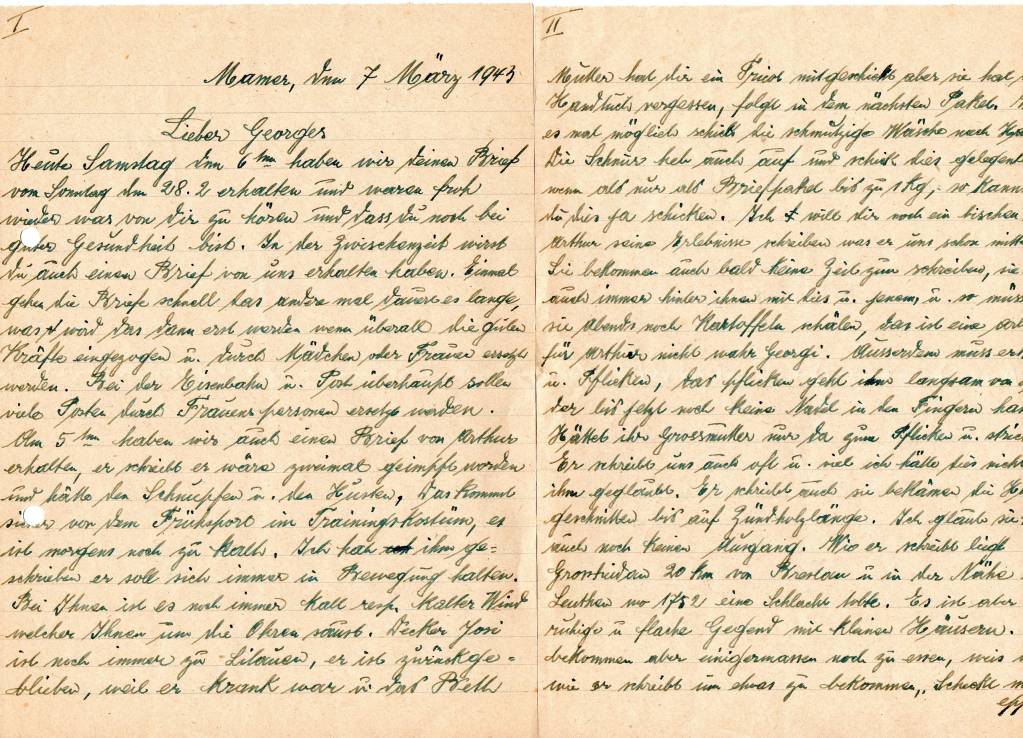 I
Mamer, den 7 März 1943
Lieber Georges
Heute Samstag den 6ten haben wir deinen Brief
vom Sonntag dem 28.2 erhalten und waren froh
wieder was von dir zu hören und dass du noch bei
guter Gesundheit bist. In der Zwischenzeit wirst
du auch einen Brief von uns erhalten haben. Einmal
gehen die Briefe schnell das andre mal dauert es lange,
was wird das dann erst werden wenn überall die guten
Kräfte eingezogen u. durch Mädchen oder Frauen ersetzt
werden. Bei der Eisenbahn u. Post überhaupt sollen
viele Posten durch Frauenspersonen ersetzt werden.
Am 5ten haben wir auch einen Brief von Arthur
erhalten, er schreibt er wäre zweimal geimpft worden
und hätte den Schnupfen u. den Husten, das kommt
sicher von dem Frühsport im Trainingskostüm, es
ist morgens noch zu kalt. Ich hab ihm ge=
schrieben er soll sich immer in Bewegung halten.
Bei Ihnen ist es noch immer kalt resp. kalter Wind
welcher Ihnen um die Ohren saust. Decker Josi
ist noch immer zu Litauen, er ist zurückge=
blieben, weil er krank war u. das Bett
II
Mutter hat dir ein Tricot mitgeschickt aber sie hat
Handtuch vergessen, folgt in dem nächsten Paket.
es mal möglich schick die schmutzige Wäsche nach
Die Schnur heb auch auf und schick dies gelegent
wenn als nur als Briefpaket bis zu 1 Kg, so kann
du dies ja schicken. Ich will dir noch ein bischen
Arthur seine Erlebnisse schreiben was er uns schon
Sie bekommen auch bald keine Zeit zum schreiben, sie
auch immer hinter ihnen mit dies u. jenem, u. so müs
sie Abends noch Kartoffeln schälen, das ist eine
für Arthur nicht wahr Georgi. Ausserdem muss er
u. Pflicken, das pflicken geht ihm langsam von
der bis jetzt noch keine Nadel in den Fingern
Hättet ihr Grossmutter nur da zum Pflicken u.
Er schreibt uns auch oft u. viel ich hätte dies nicht
ihm geglaubt. Er schreibt auch sie bekämen die
geschnitten bis auf Zündholzlänge. Ich glaub sie
auch noch keinen Ausgang. Wie er schreibt liegt
20 km von Breslau u in der Nähe
Leuthen wo 1752 eine Schlacht tobte. Es ist aber
ruhige u flache Gegend mit kleinen Häusern.
bekommen aber einigermassen noch zu essen, weis
wie er schreibt um etwas zu bekommen, Schickt